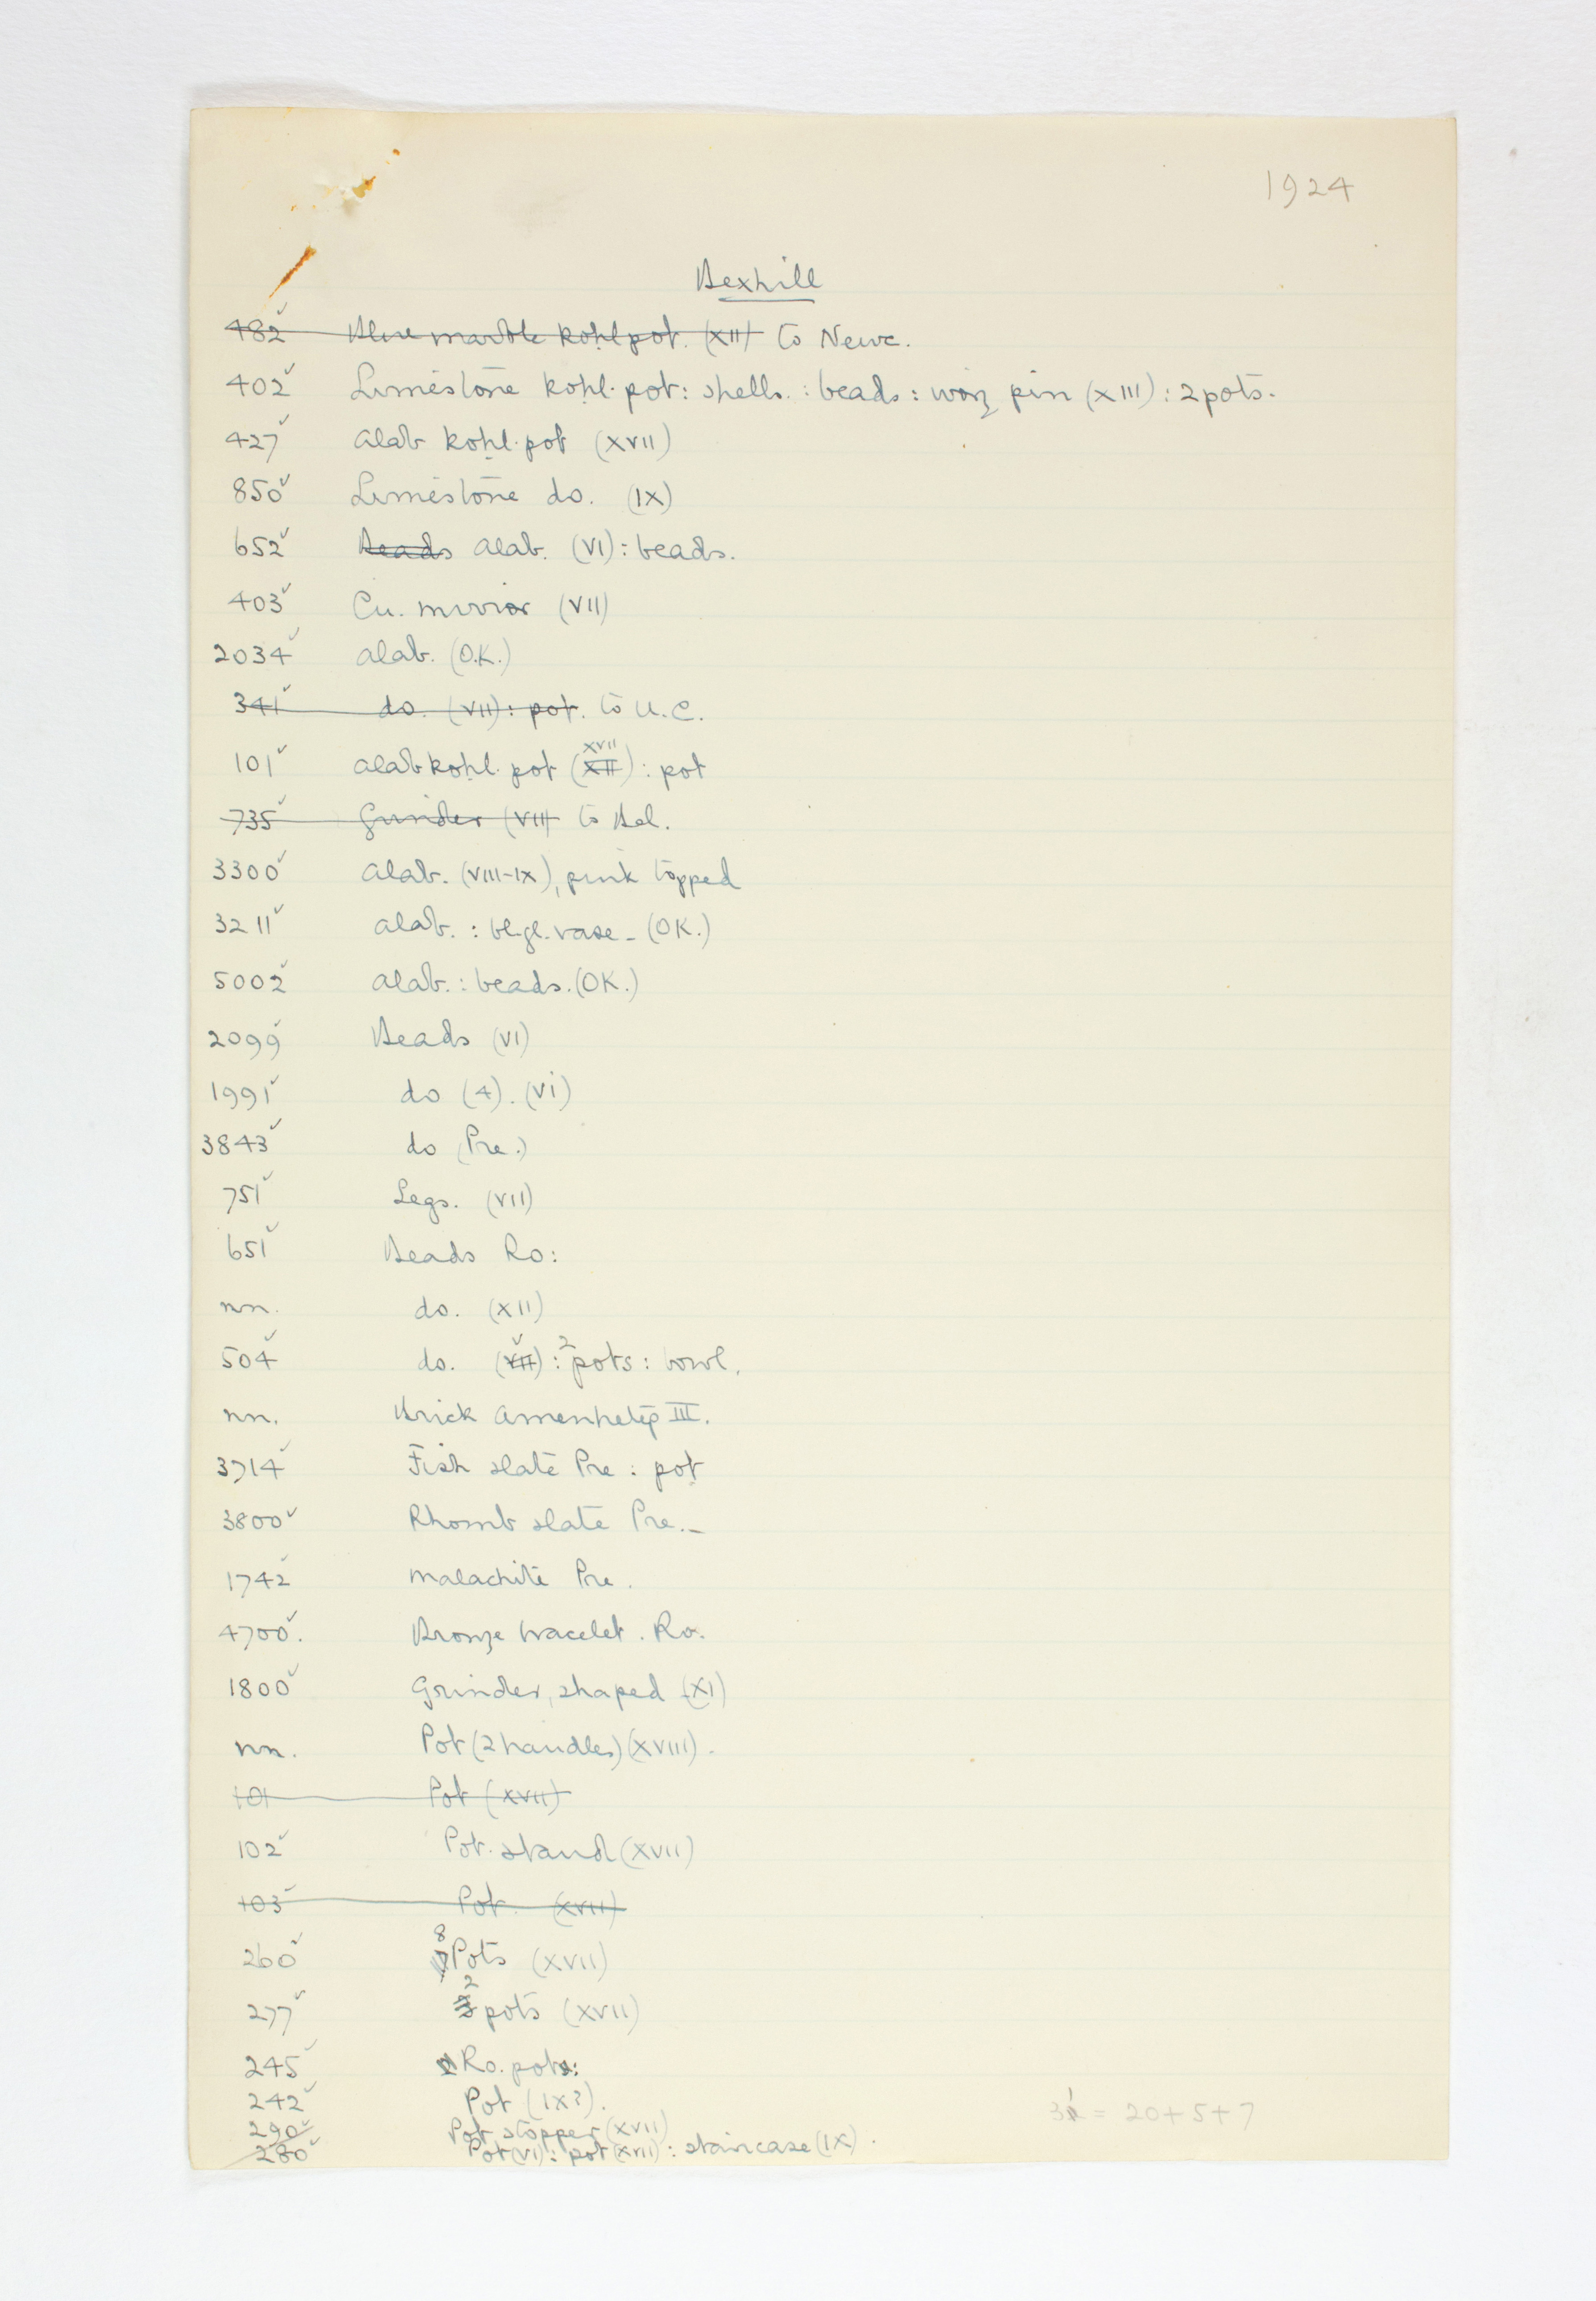 1924
Bexhill
482 Blue marble kohl pot. (XII) to Newc.
402 Limestone kohl.pot: shells.: beads: ivory pin (XIII): 2 pots.
427 Alab kohl.pot (XVII)
850 Limestone do. (IX)
652 Beads Alab. (VI): beads.
403 Cu. mirror (VII)
2034 Alab. (O.K.)
341 do. (VII): pot. to U.C.
101 Alab kohl.pot (XII XVII): pot
735 Grinder (VII) to Bel.
3300 Alab. (VIII-IX), pink topped
3211 Alab.: bl.gl. vase - (OK.)
5002 Alab.: beads. (OK.)
2099 Beads (VI)
1991 do (4). (VI)
3843 do (Pre.)
751 Legs. (VII)
651 Beads Ro:
nn. do. (XII)
504 do. (VII V): 2 pots: bowl.
nn. Brick Amenhetep III.
3714 Fish slate Pre: pot
3800 Rhomb slate Pre.-
1742 Malachite Pre.
4700. Bronze bracelet. Ro.
1800 Grinder, shaped (XI)
nn. Pot (2 handles) (XVIII).
101 Pot (XVII)
102 Pot.stand (XVII)
103 Pot (XVII)
260 8 Pots (XVII)
277 3 2 pots (XVII)
245 Ro. pots:
242 Pot (IX?).
290 Pot stopper (XVII)
280 Pot (VI): pot (XVII): staircase (IX).
31 = 20+5+7